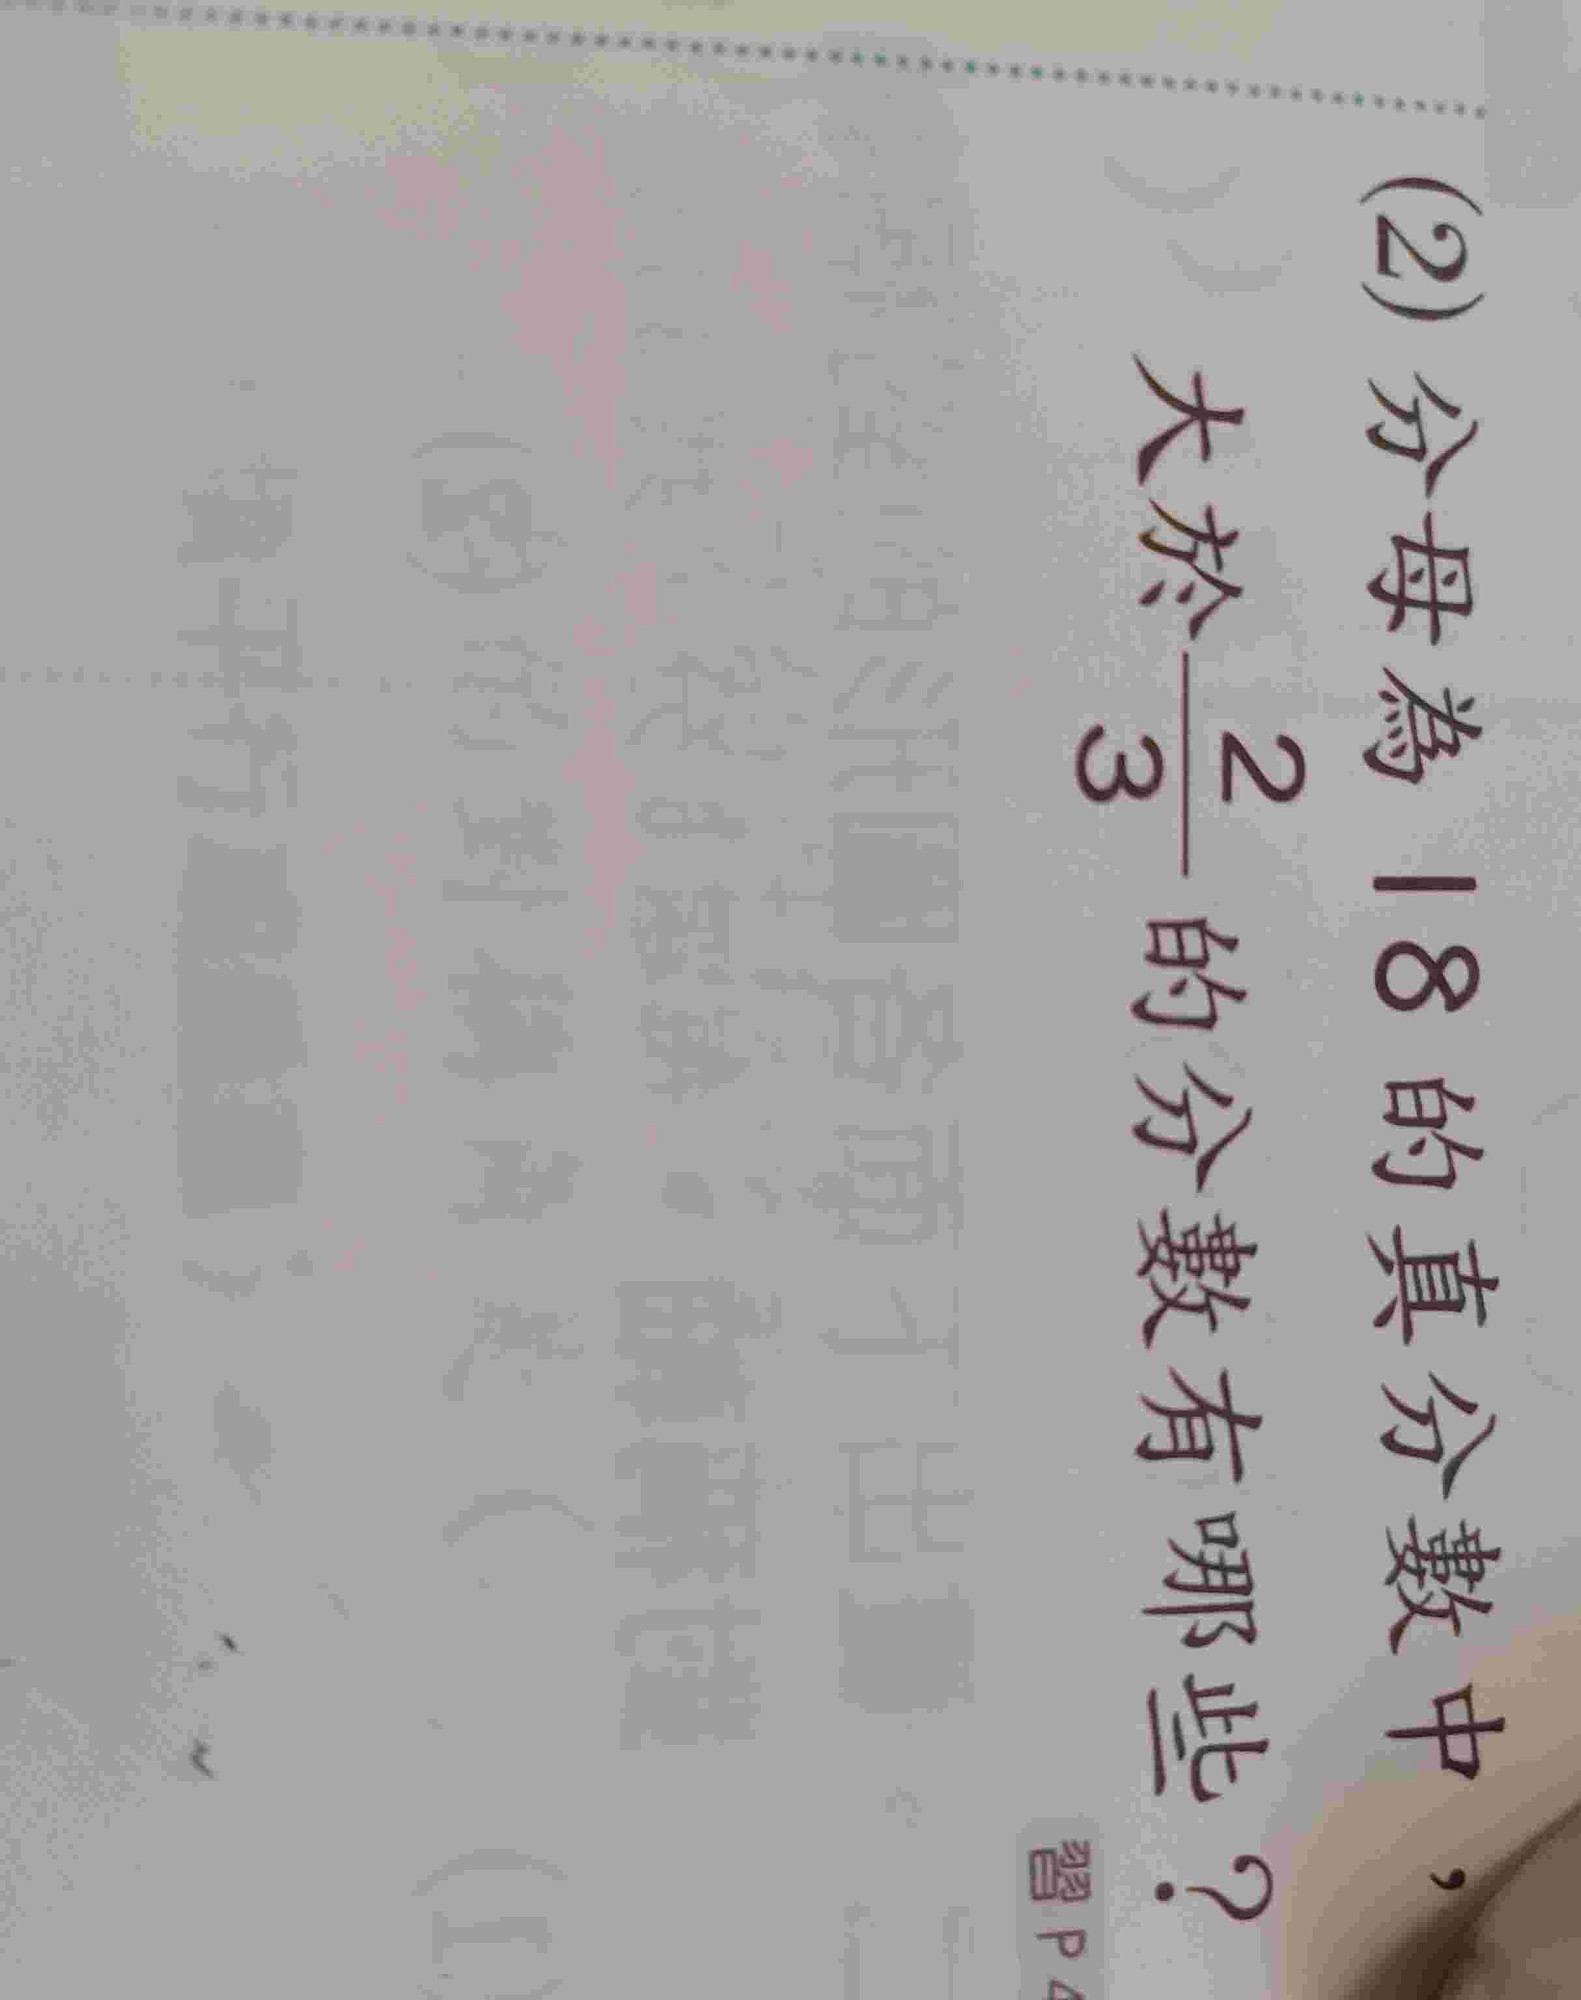 (2) 分母為 18 的真分數中，
大於 2/3 的分數有哪些？
習 P